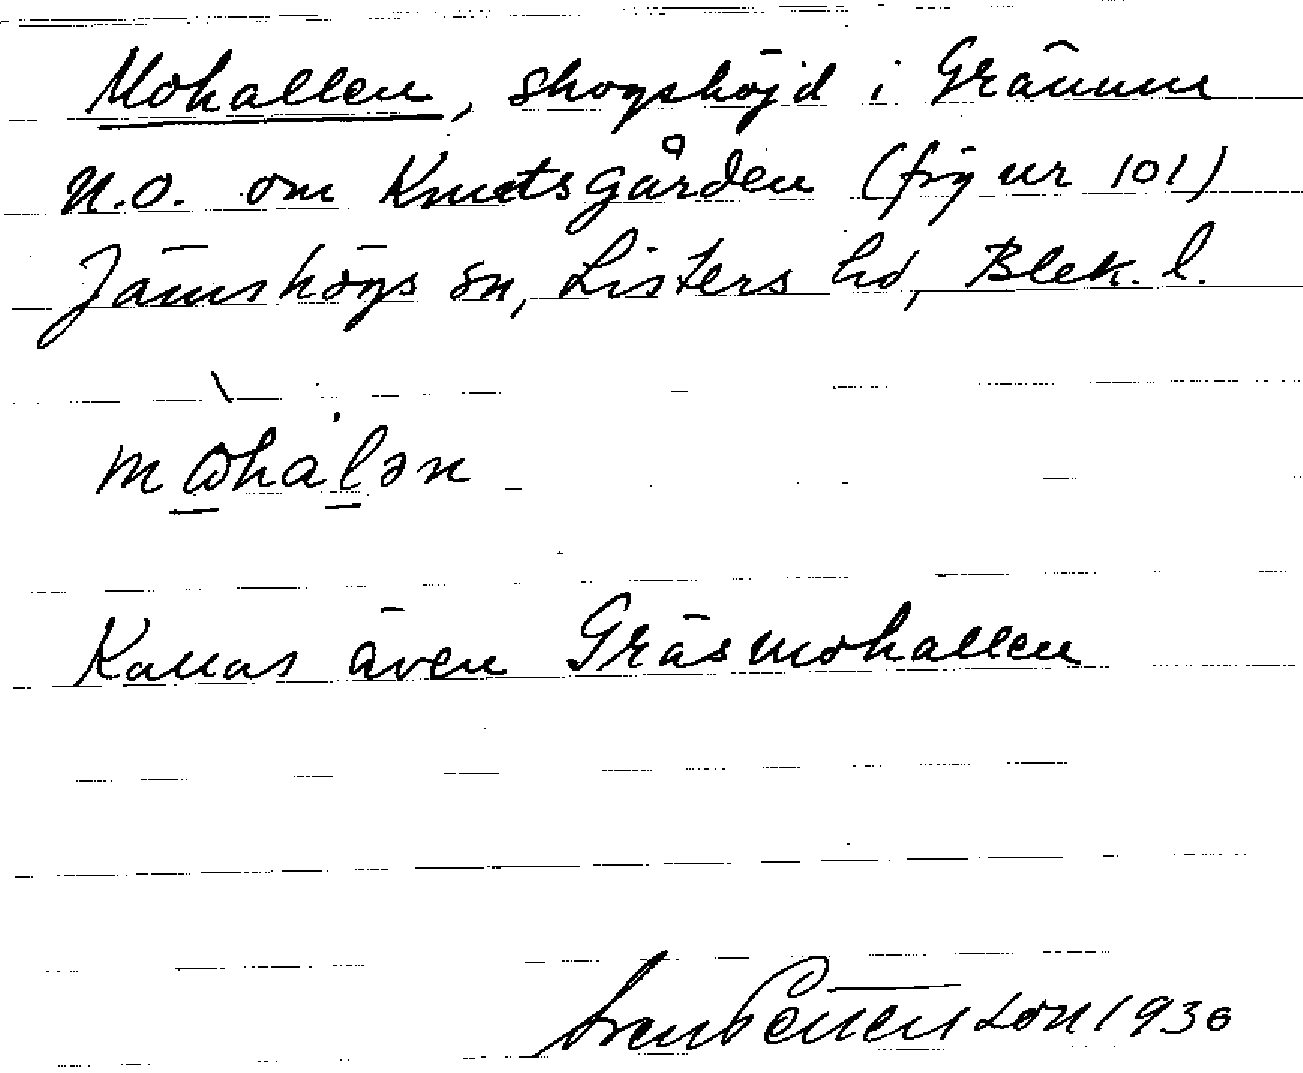 Mohallen, skogshöjd i Gränum
N.O. om Knutsgården (figur 101)
Jämshögs sn, Listers hd, Blek. l.
mωhalən
Kallas även Gräsmohallen
Sven Pettersson 1936